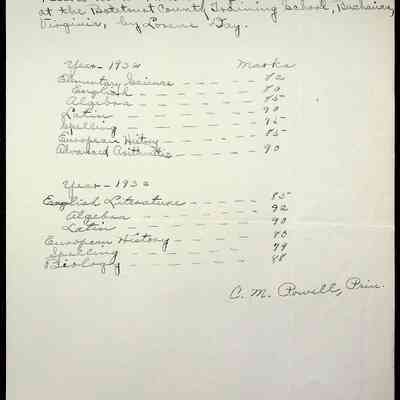 at the Botetourt County Training School, Buchanan,
Virginia, by Lorene Day.
Year - 1932 Marks
Elementary Science - - - - 82
English - - - - - 80
Algebra - - - - - 85
Latin - - - - - 90
Spelling - - - - - 95
European History - - - - 85
Advanced Arithmetic - - - - 90
Year - 1932
English Literature - - - - 85
Algebra - - - - - 92
Latin - - - - - 90
European History - - - - 80
Spelling - - - - - 99
Biology - - - - - 88
C. M. Powell, Prin.